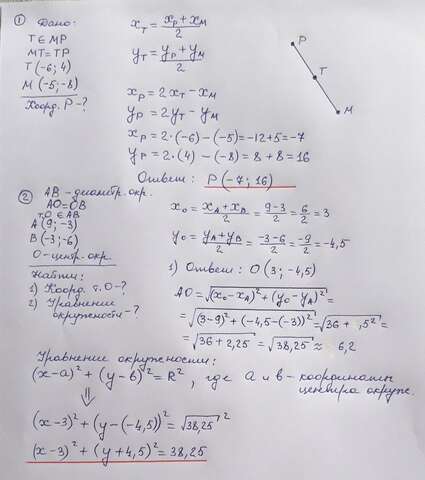 ① Дано:
T ∈ MP
MT = TP
T (-6; 4)
M (-5; -8)
Коорд. P - ?
x_T = (x_P + x_M)/2
y_T = (y_P + y_M)/2
x_P = 2x_T - x_M
y_P = 2y_T - y_M
x_P = 2·(-6) - (-5) = -12+5 = -7
y_P = 2·(4) - (-8) = 8 + 8 = 16
Ответ: P(-7; 16)
P
T
M
② AB - диаметр. окр.
AO = OB
т.O ∈ AB
A (9; -3)
B (-3; -6)
O - центр. окр.
Найти:
1) Коорд. т. O - ?
2) Уравнение
окружности - ?
x_0 = (x_A + x_B)/2 = (9-3)/2 = 6/2 = 3
y_0 = (y_A + y_B)/2 = (-3-6)/2 = -9/2 = -4,5
1) Ответ: O (3; -4,5)
AO = √((x_0 - x_A)² + (y_0 - y_A)²) =
= √((3-9)² + (-4,5-(-3))²) = √(36 + ,5²) =
= √(36 + 2,25) = √(38,25) ≈ 6,2
Уравнение окружности:
(x-a)² + (y-b)² = R², где a и b - координаты
центра окруж.
⇓
(x-3)² + (y-(-4,5))² = √(38,25)²
(x-3)² + (y+4,5)² = 38,25